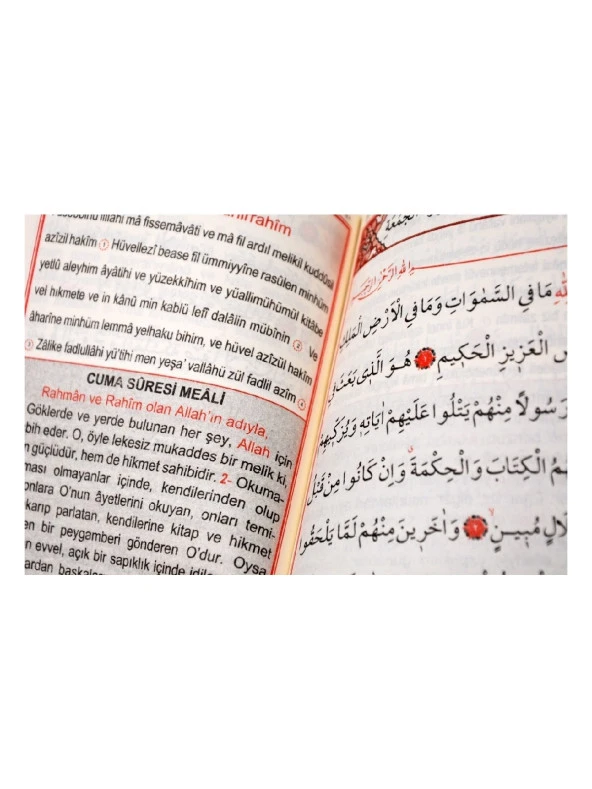 lillâhi mâ fissemâvâti ve mâ fil ardıl melikil kuddûsil
azîzil hakîm 1 Hüvellezî bease fîl ümmiyyîne rasûlen minhüm
yetlû aleyhim âyâtihî ve yüzekkîhim ve yüallimühümül kitâbe
vel hıkmete ve in kânû min kablü lefî dalâlin mübînin 2 Ve
âharîne minhüm lemmâ yelhaku bihim, ve hüvel azîzül hakîm
3 Zâlike fadlullâhi yü'tîhi men yeşa' vallâhü zül fadlil azîm 4
CUMA SÛRESİ MEÂLİ
Rahmân ve Rahîm olan Allah'ın adıyla.
Göklerde ve yerde bulunan her şey, Allah için
bih eder. O, öyle lekesiz mukaddes bir melik ki,
güçlüdür, hem de hikmet sahibidir. 2- Okuma-
ması olmayanlar içinde, kendilerinden olup
onlara O'nun âyetlerini okuyan, onları temi-
karıp parlatan, kendilerine kitap ve hikmet
en bir peygamberi gönderen O'dur. Oysa
evvel, açık bir sapıklık içinde idiler
ardan başkaları
الجمعة
الله الرحمن الرحيم
مَا فِي السَّمٰوَاتِ وَمَا فِي الْاَرْضِ الْمَلِكِ
الْعَزِيزِ الْحَكِيمِ ١ هُوَ الَّذِي بَعَثَ فِي
رَسُولًا مِنْهُمْ يَتْلُوا عَلَيْهِمْ اٰيَاتِهِ وَيُزَكِّيهِمْ
الْكِتَابَ وَالْحِكْمَةَ وَاِنْ كَانُوا مِنْ قَبْلُ
مُبِينٍ ٢ وَاٰخَرِينَ مِنْهُمْ لَمَّا يَلْحَقُوا